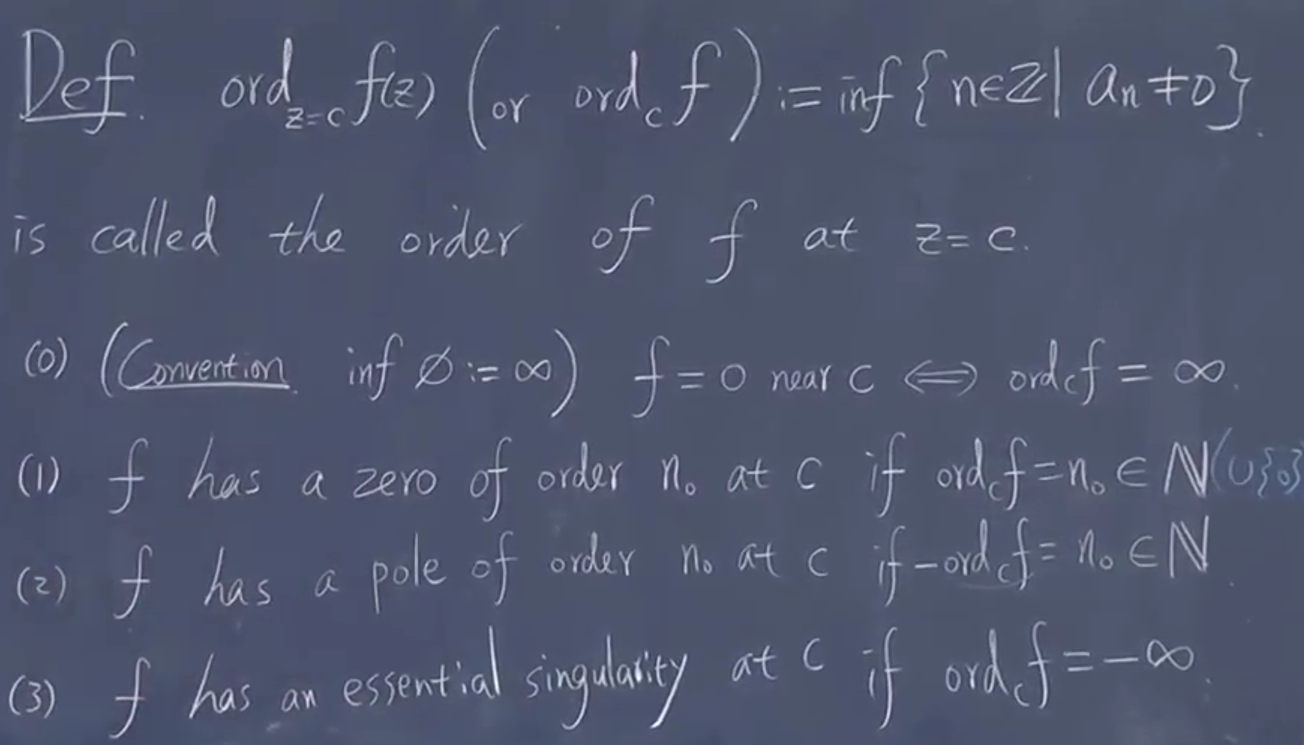 Def. ord_{z=c} f(z) (or ord_c f) := inf {n∈ℤ| a_n ≠ 0}.
is called the order of f at z=c.
(0) (Convention. inf ∅ := ∞) f=0 near c ⟺ ord_c f = ∞.
(1) f has a zero of order n₀ at c if ord_c f = n₀ ∈ ℕ(∪{0}
(2) f has a pole of order n₀ at c if -ord_c f = n₀ ∈ ℕ.
(3) f has an essential singularity at c if ord_c f = -∞.